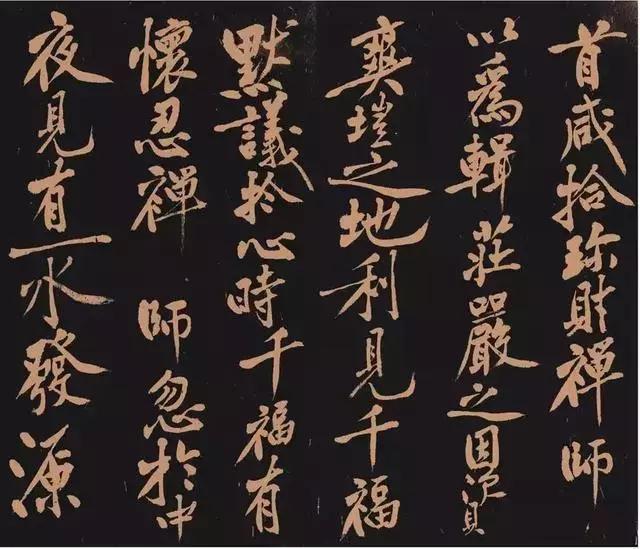 首咸捨珎財禪師
以爲輯莊嚴之因資
爽塏之地利見千福
默議於心時千福有
懷忍禪師忽於中
夜見有一水發源